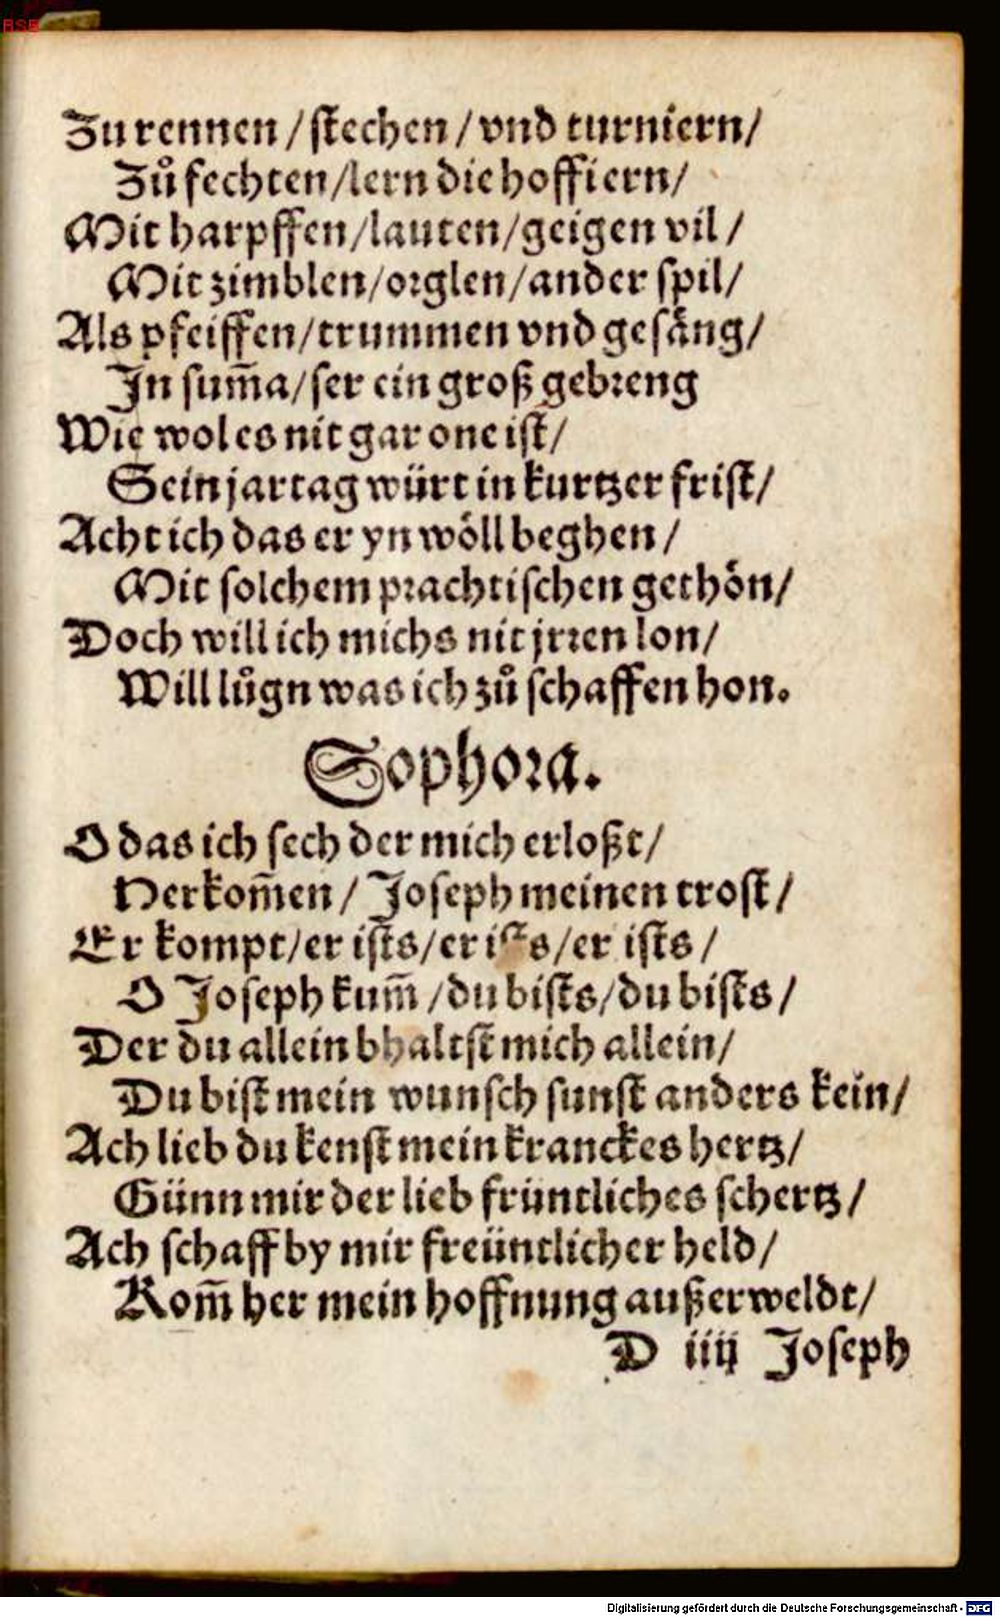 BSB
Zu rennen / stechen / vnd turniern/
Zů fechten /lern die hoffiern/
Mit harpffen/lauten/geigen vil /
Mit zimblen/orglen/ander spil/
Als pfeiffen/trummen vnd gesäng/
In sum̃a/ser ein groß gebreng
Wie wol es nit gar one ist/
Sein jartag würt in kurtzer frist/
Acht ich das er yn wöll beghen /
Mit solchem prachtischen gethön/
Doch will ich michs nit jrren lon/
Will lůgn was ich zů schaffen hon.
Sophora.
O das ich sech der mich erloßt/
Herkom̃en / Joseph meinen trost /
Er kompt/er ists/er ists/er ists /
O Joseph kum̃ /du bists/du bists /
Der du allein bhaltst mich allein/
Du bist mein wunsch sunst anders kein/
Ach lieb du kenst mein kranckes hertz/
Günn mir der lieb früntliches schertz /
Ach schaff by mir freüntlicher held/
Kom̃ her mein hoffnung außerweldt/
D iiij Joseph
Digitalisierung gefördert durch die Deutsche Forschungsgemeinschaft - DFG